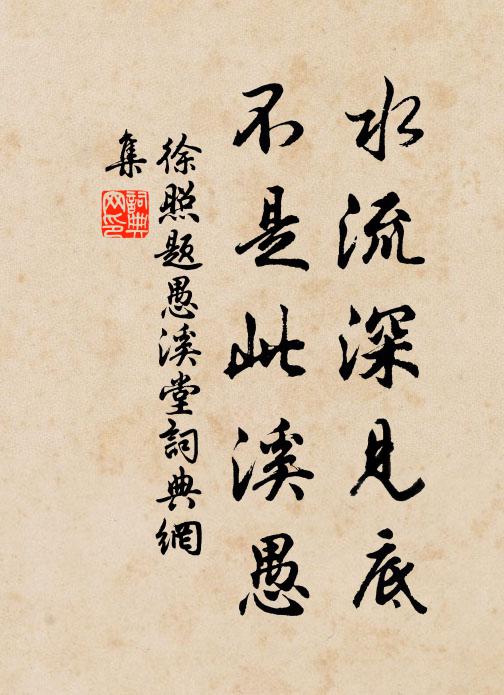 水流深見底
不是此溪愚
徐照題愚溪堂詞典網
集
詞典
网印